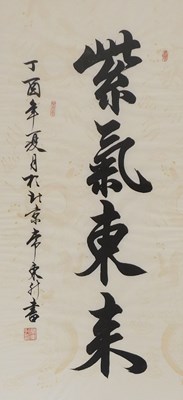 紫氣東来
丁酉年夏月於北京常東升書